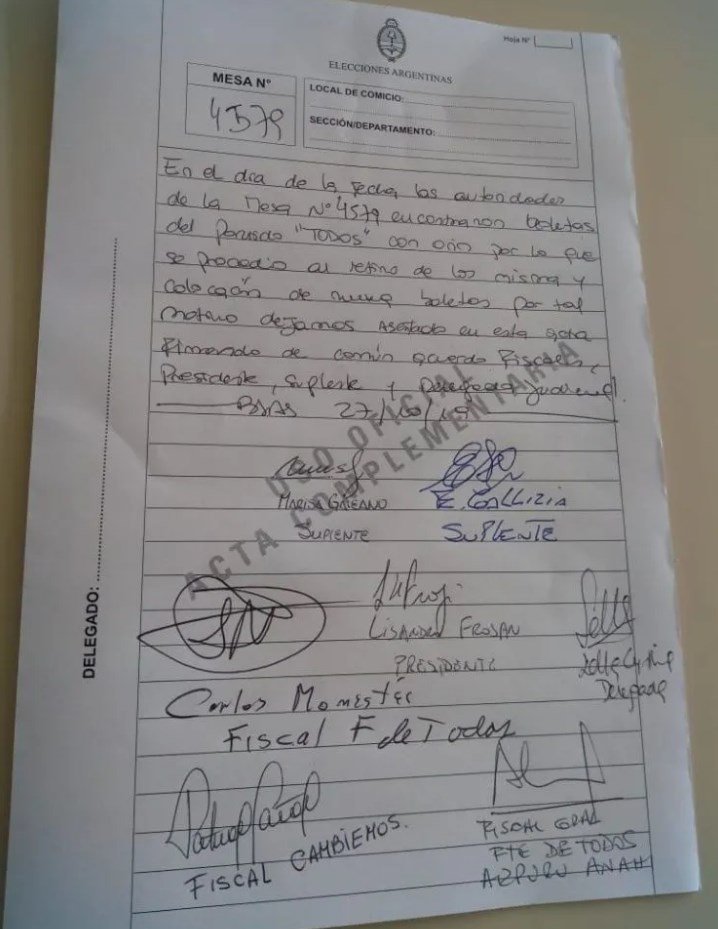 Hoja N°
ELECCIONES ARGENTINAS
MESA N°
4579
LOCAL DE COMICIO:
SECCIÓN/DEPARTAMENTO:
En el día de la fecha las autoridades
de la Mesa N° 4579 encontraron boletas
del partido "TODOS" con orin por lo que
se procedio al retiro de los misma y
colocación de nueva boletas por tal
motivo dejamos asentado en esta acta
firmando de común acuerdo Fiscales,
Presidente, suplente y Delegada judicial.
BSAS 27/10/19
USO OFICIAL
ACTA COMPLEMENTARIA
MARISA GALEANO
SUPLENTE
E. GALLIZIA
SUPLENTE
DELEGADO:
LISANDRO FROSAN
PRESIDENTE
Delegada
Carlos Monestés
Fiscal F de Todos
FISCAL CAMBIEMOS.
FISCAL GRAL
FTE DE TODOS
AZPURU ANAH